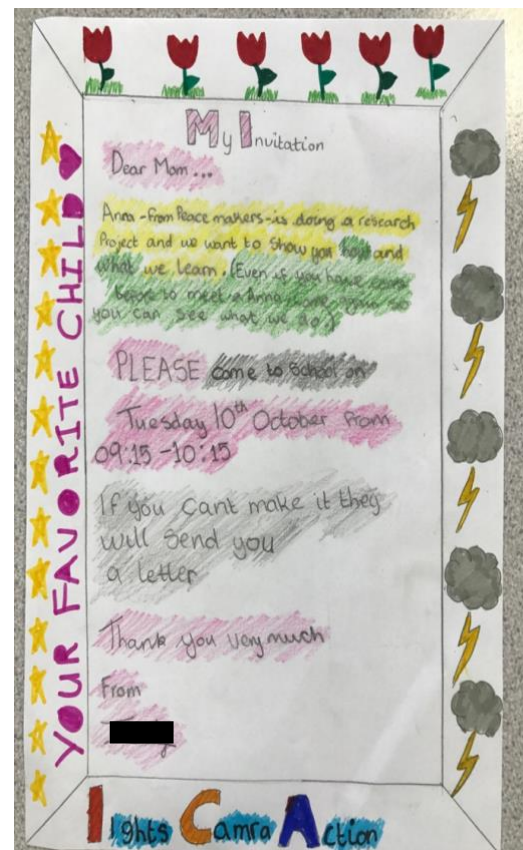 My Invitation
Dear Mom...
Anna-from Peace makers-is doing a research
Project and we want to show you how and
what we learn. (Even if you have come
before to meet Anna come again so
you can see what we do)
PLEASE come to School on
Tuesday 10th October from
09:15-10:15
If you cant make it they
will Send you
a letter
Thank you very much
From
YOUR FAVORITE CHILD
lights Camra Action